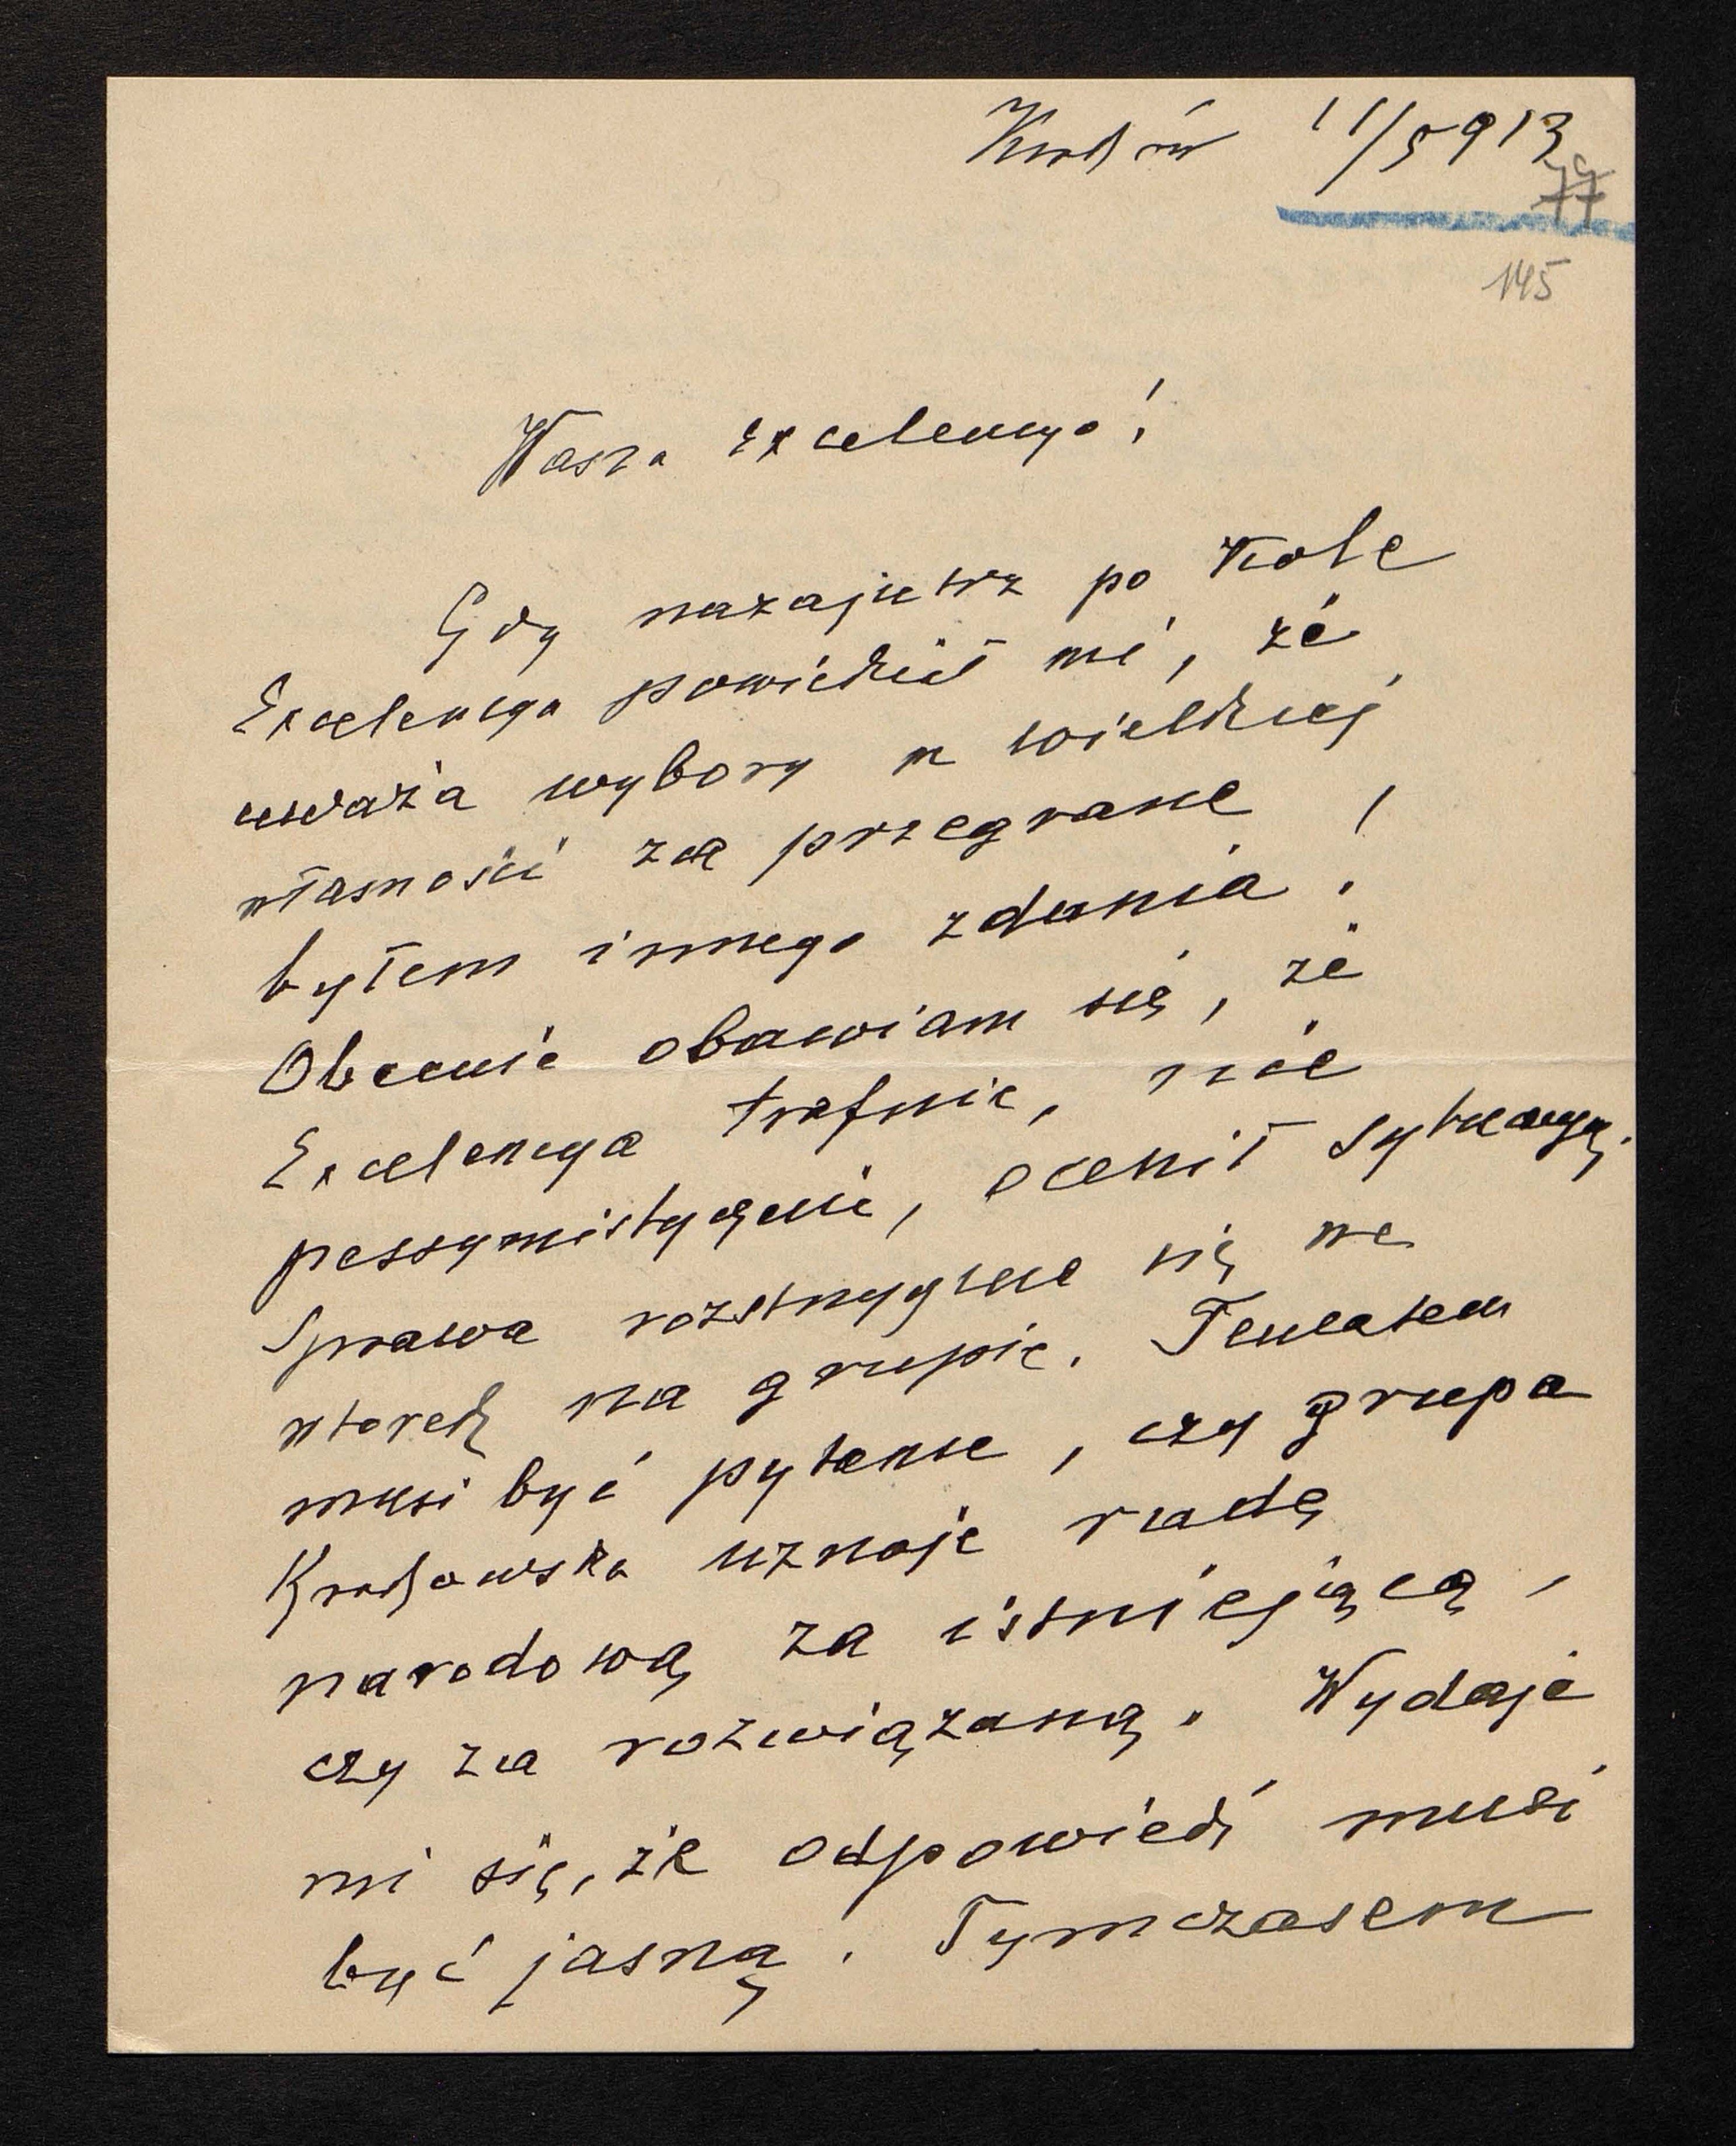 Kraków 11/5 913
79
77
145
Wasza Excelencyo!
Gdy nazajutrz po Kole
Excelencya powiedział mi, że
uważa wybory w wielkiej
własności za przegrane,
byłem innego zdania!
Obecnie obawiam się, że
Excelencya trafnie, nie
pessymistycznie, ocenił sytuacyę.
Sprawa rozstrzygnie się we
wtorek na grupie. Tematem
musi być pytanie, czy grupa
Krakowska uznaje radę
narodową za istniejącą,
czy za rozwiązaną. Wydaje
mi się, że odpowiedź musi
być jasną. Tymczasem